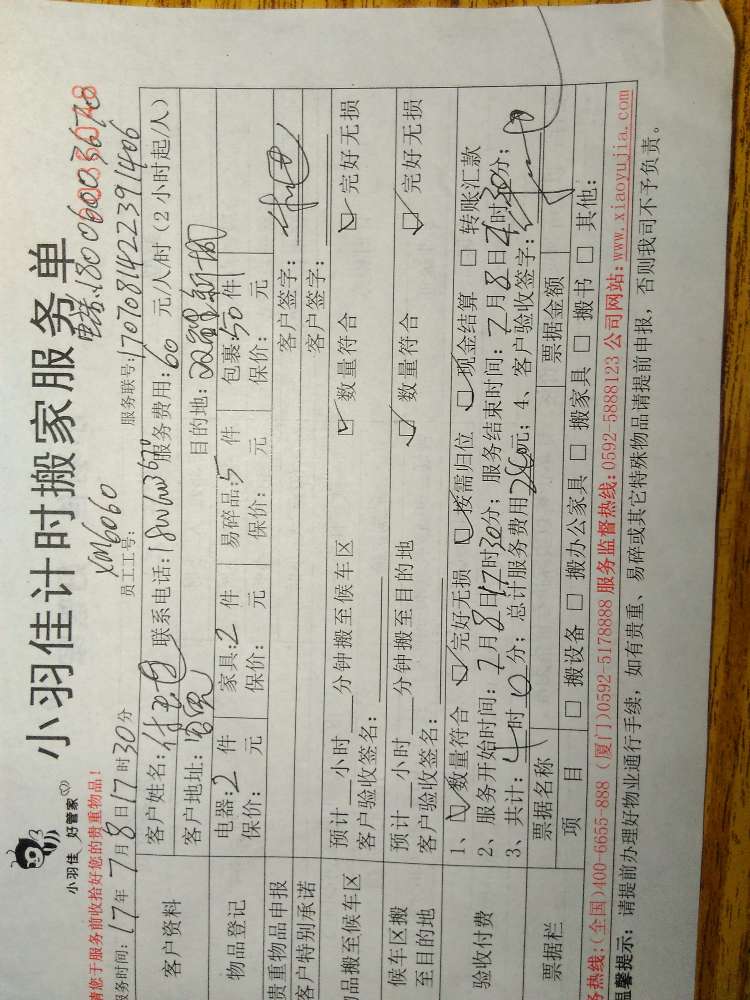 小羽佳计时搬家服务单
小羽佳 好管家
请您于服务前收拾好您的贵重物品!
电话:18006003670
服务时间:17年7月8日17时30分 员工工号:XM6060 服务联号:17070814223914 06
客户资料 客户姓名: 联系电话:18006003670 服务费用:60元/人/时(2小时起/人)
客户地址: 目的地:
物品登记 电器:2件 家具:2件 易碎品:5件 包裹:50件
保价: 元 保价: 元 保价: 元 保价: 元
贵重物品申报 客户签字:
客户特别承诺 客户签字:
物品搬至候车区 预计 小时 分钟搬至候车区 数量符合 完好无损
客户验收签名:
候车区搬至目的地 预计 小时 分钟搬至目的地 数量符合 完好无损
客户验收签名:
验收付费 1、数量符合 完好无损 按需归位 现金结算 转账汇款
2、服务开始时间:7月8日17时30分;服务结束时间:7月8日 时30分;
3、共计: 时0分;总计服务费用 元;4、客户验收签字:
票据栏 票据名称 票据金额
项目 搬设备 搬办公家具 搬家具 搬书 其他:
服务热线:(全国)400-6655-888 (厦门)0592-5178888 服务监督热线:0592-5888123 公司网站:www.xiaoyujia.com
温馨提示:请提前办理好物业通行手续,如有贵重、易碎或其它特殊物品请提前申报,否则我司不予负责。